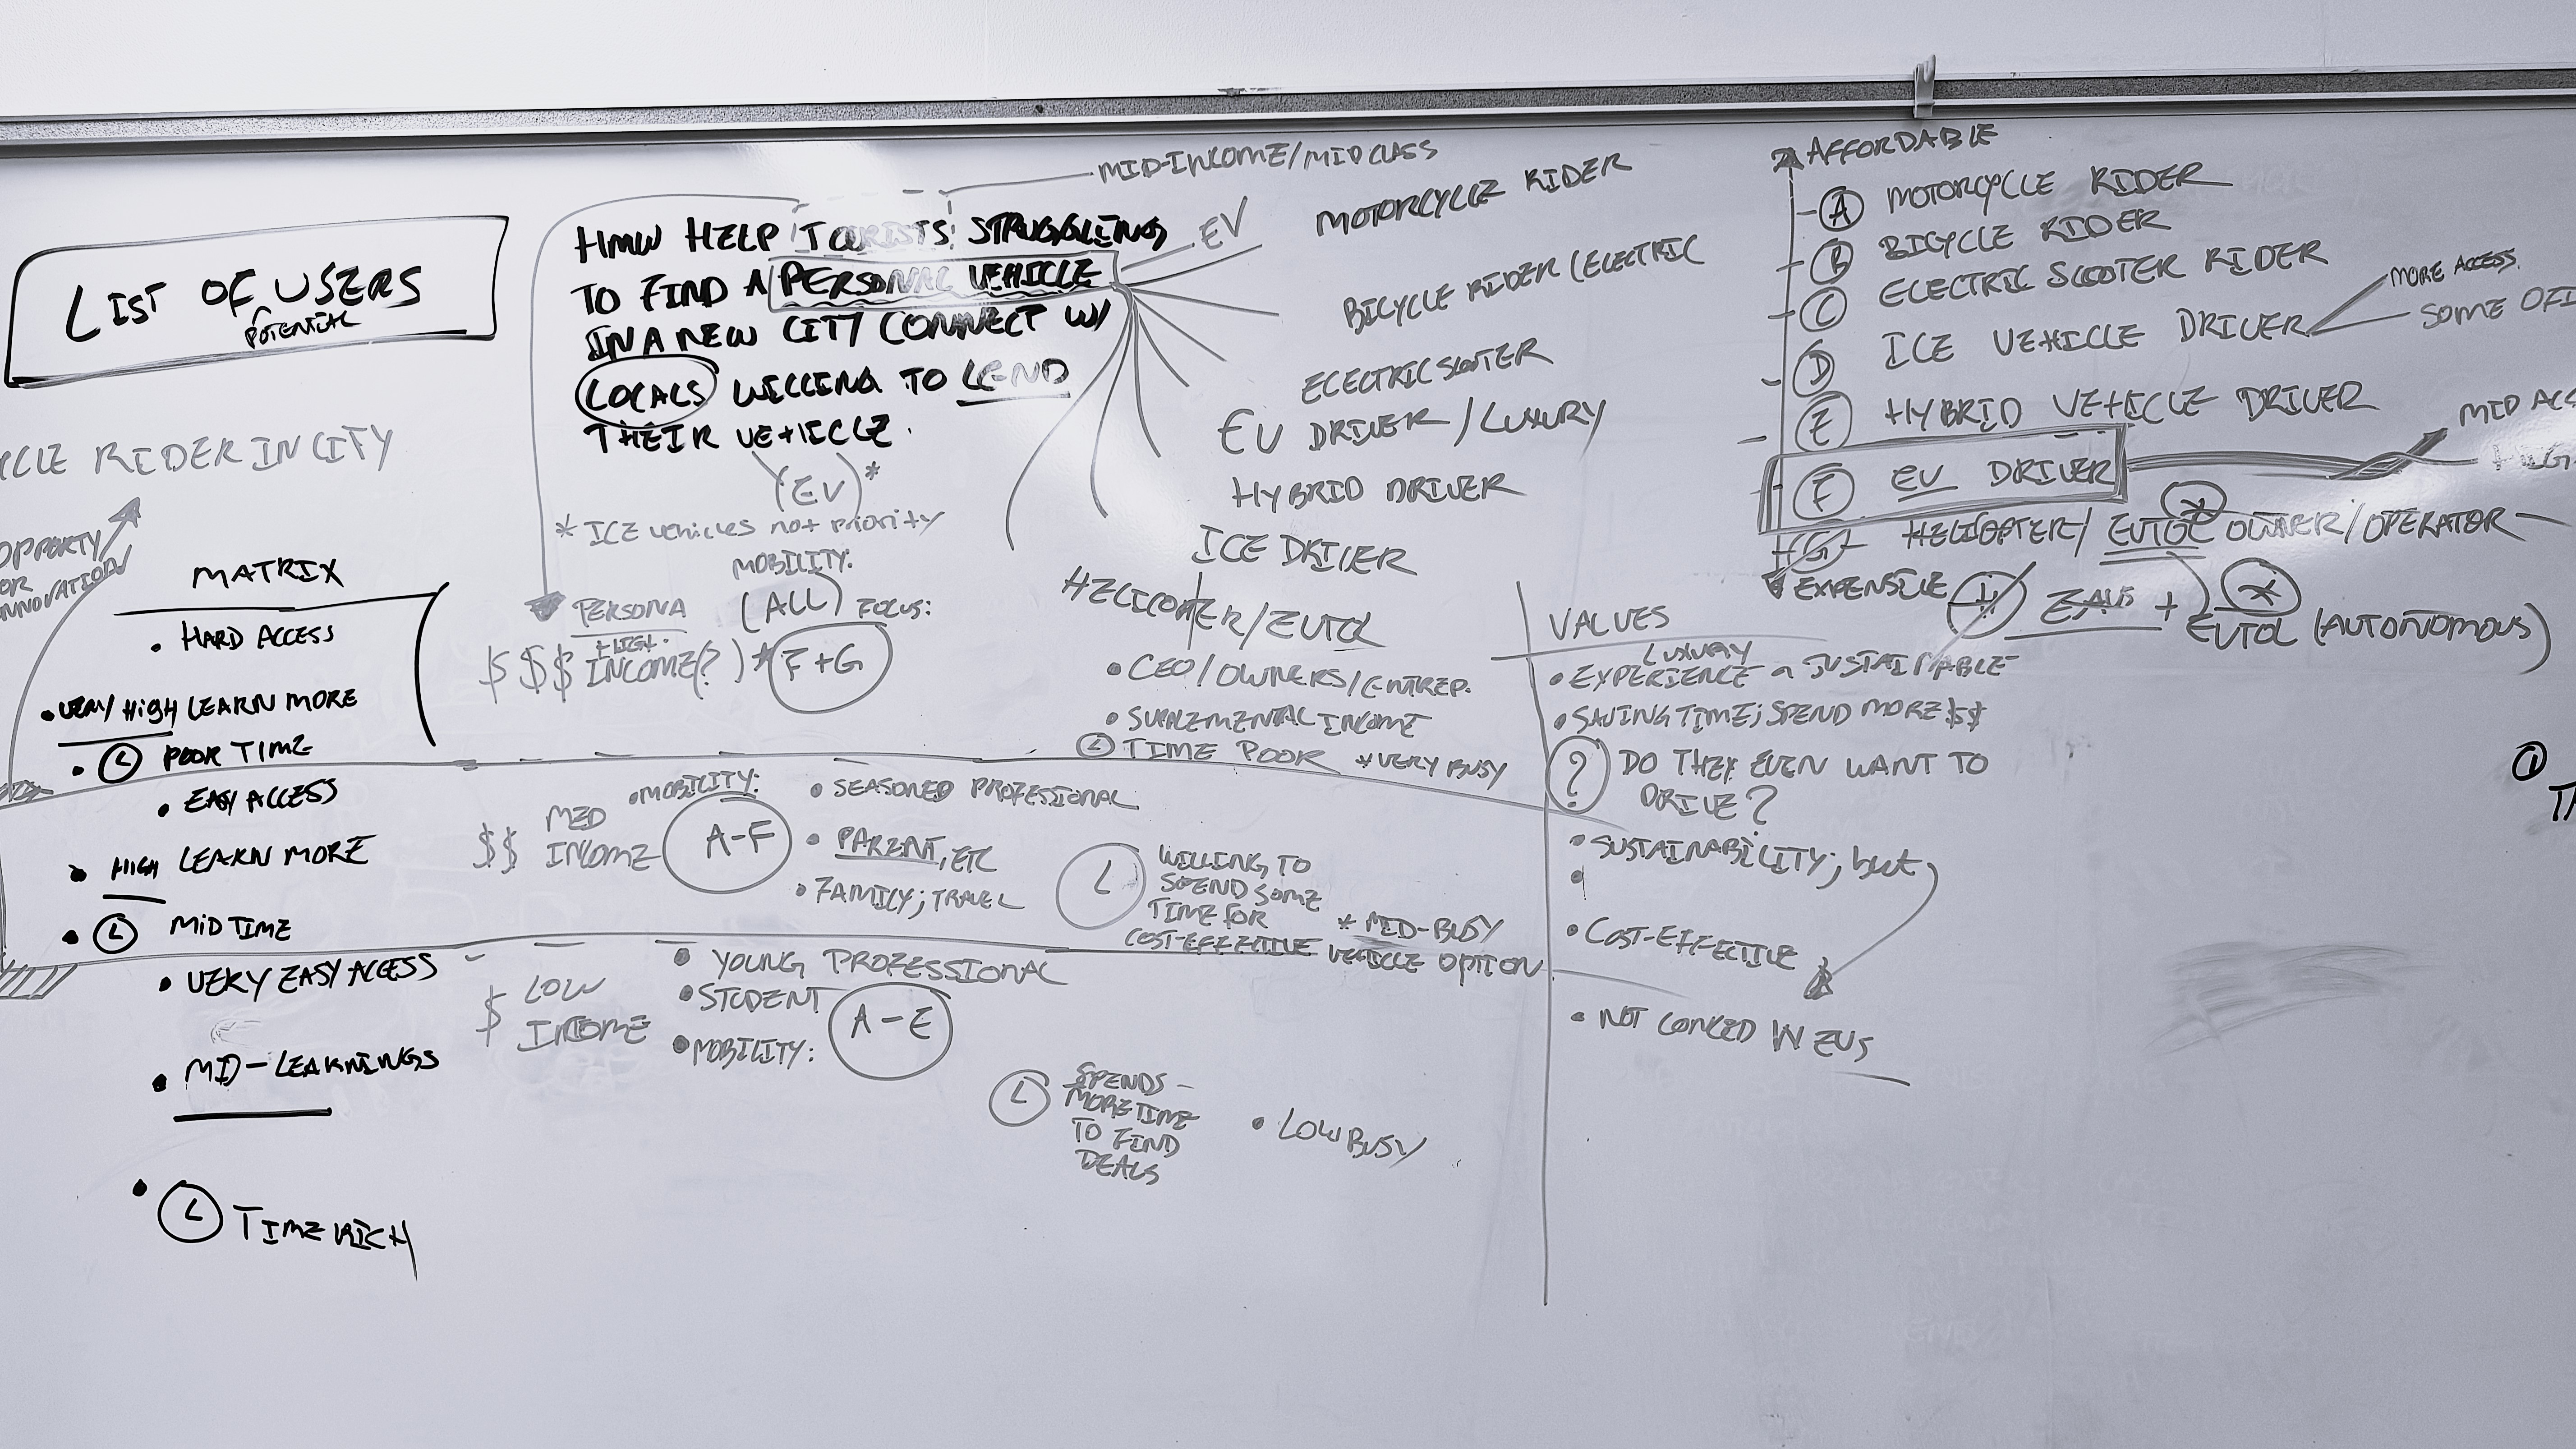 LIST OF USERS
POTENTIAL
CLE RIDER IN CITY
OPPORTY
OR
INNOVATION
MATRIX
• HARD ACCESS
• VERY/HIGH LEARN MORE
• POOR TIME
• EASY ACCESS
• HIGH LEARN MORE
• MID TIME
• VERY EASY ACCESS
• MID-LEARNINGS
• TIME RICH
MID-INCOME/MID CLASS
HMW HELP TOURISTS STRUGGLING
TO FIND A PERSONAL VEHICLE
IN A NEW CITY CONNECT W/
LOCALS WILLING TO LEND
THEIR VEHICLE.
(EV)*
* ICE vehicles not priority
MOBILITY:
PERSONA (ALL) FOCUS:
HIGH
$$$ INCOME(?) * F+G
EV
MOTORCYCLE RIDER
BICYCLE RIDER (ELECTRIC
ELECTRIC SCOOTER
EV DRIVER/LUXURY
HYBRID DRIVER
ICE DRIVER
HELICOPTER/EVTOL
• CEO/OWNERS/ENTREP.
• SUPPLEMENTAL INCOME
TIME POOR *VERY BUSY
$$ MED
INCOME
• MOBILITY:
A-F
• SEASONED PROFESSIONAL
• PARENT, ETC
• FAMILY; TRAVEL
WILLING TO
SPEND SOME
TIME FOR
COST-EFFECTIVE VEHICLE OPTION
* MID-BUSY
$ LOW
INCOME
• YOUNG PROFESSIONAL
• STUDENT
• MOBILITY:
A-E
SPENDS
MORE TIME
TO FIND
DEALS
• LOW BUSY
AFFORDABLE
A MOTORCYCLE RIDER
B BICYCLE RIDER
C ELECTRIC SCOOTER RIDER
D ICE VEHICLE DRIVER
MORE ACCESS.
SOME OF
E HYBRID VEHICLE DRIVER
F EV DRIVER
MID ACC
G HELICOPTER/EVTOL OWNER/OPERATOR
EXPENSIVE
+ EVTOL (AUTONOMOUS)
VALUES
LUXURY
• EXPERIENCE SUSTAINABLE
• SAVING TIME; SPEND MORE $$
? DO THEY EVEN WANT TO
DRIVE?
• SUSTAINABILITY; but
• COST-EFFECTIVE
• NOT W EVS
①